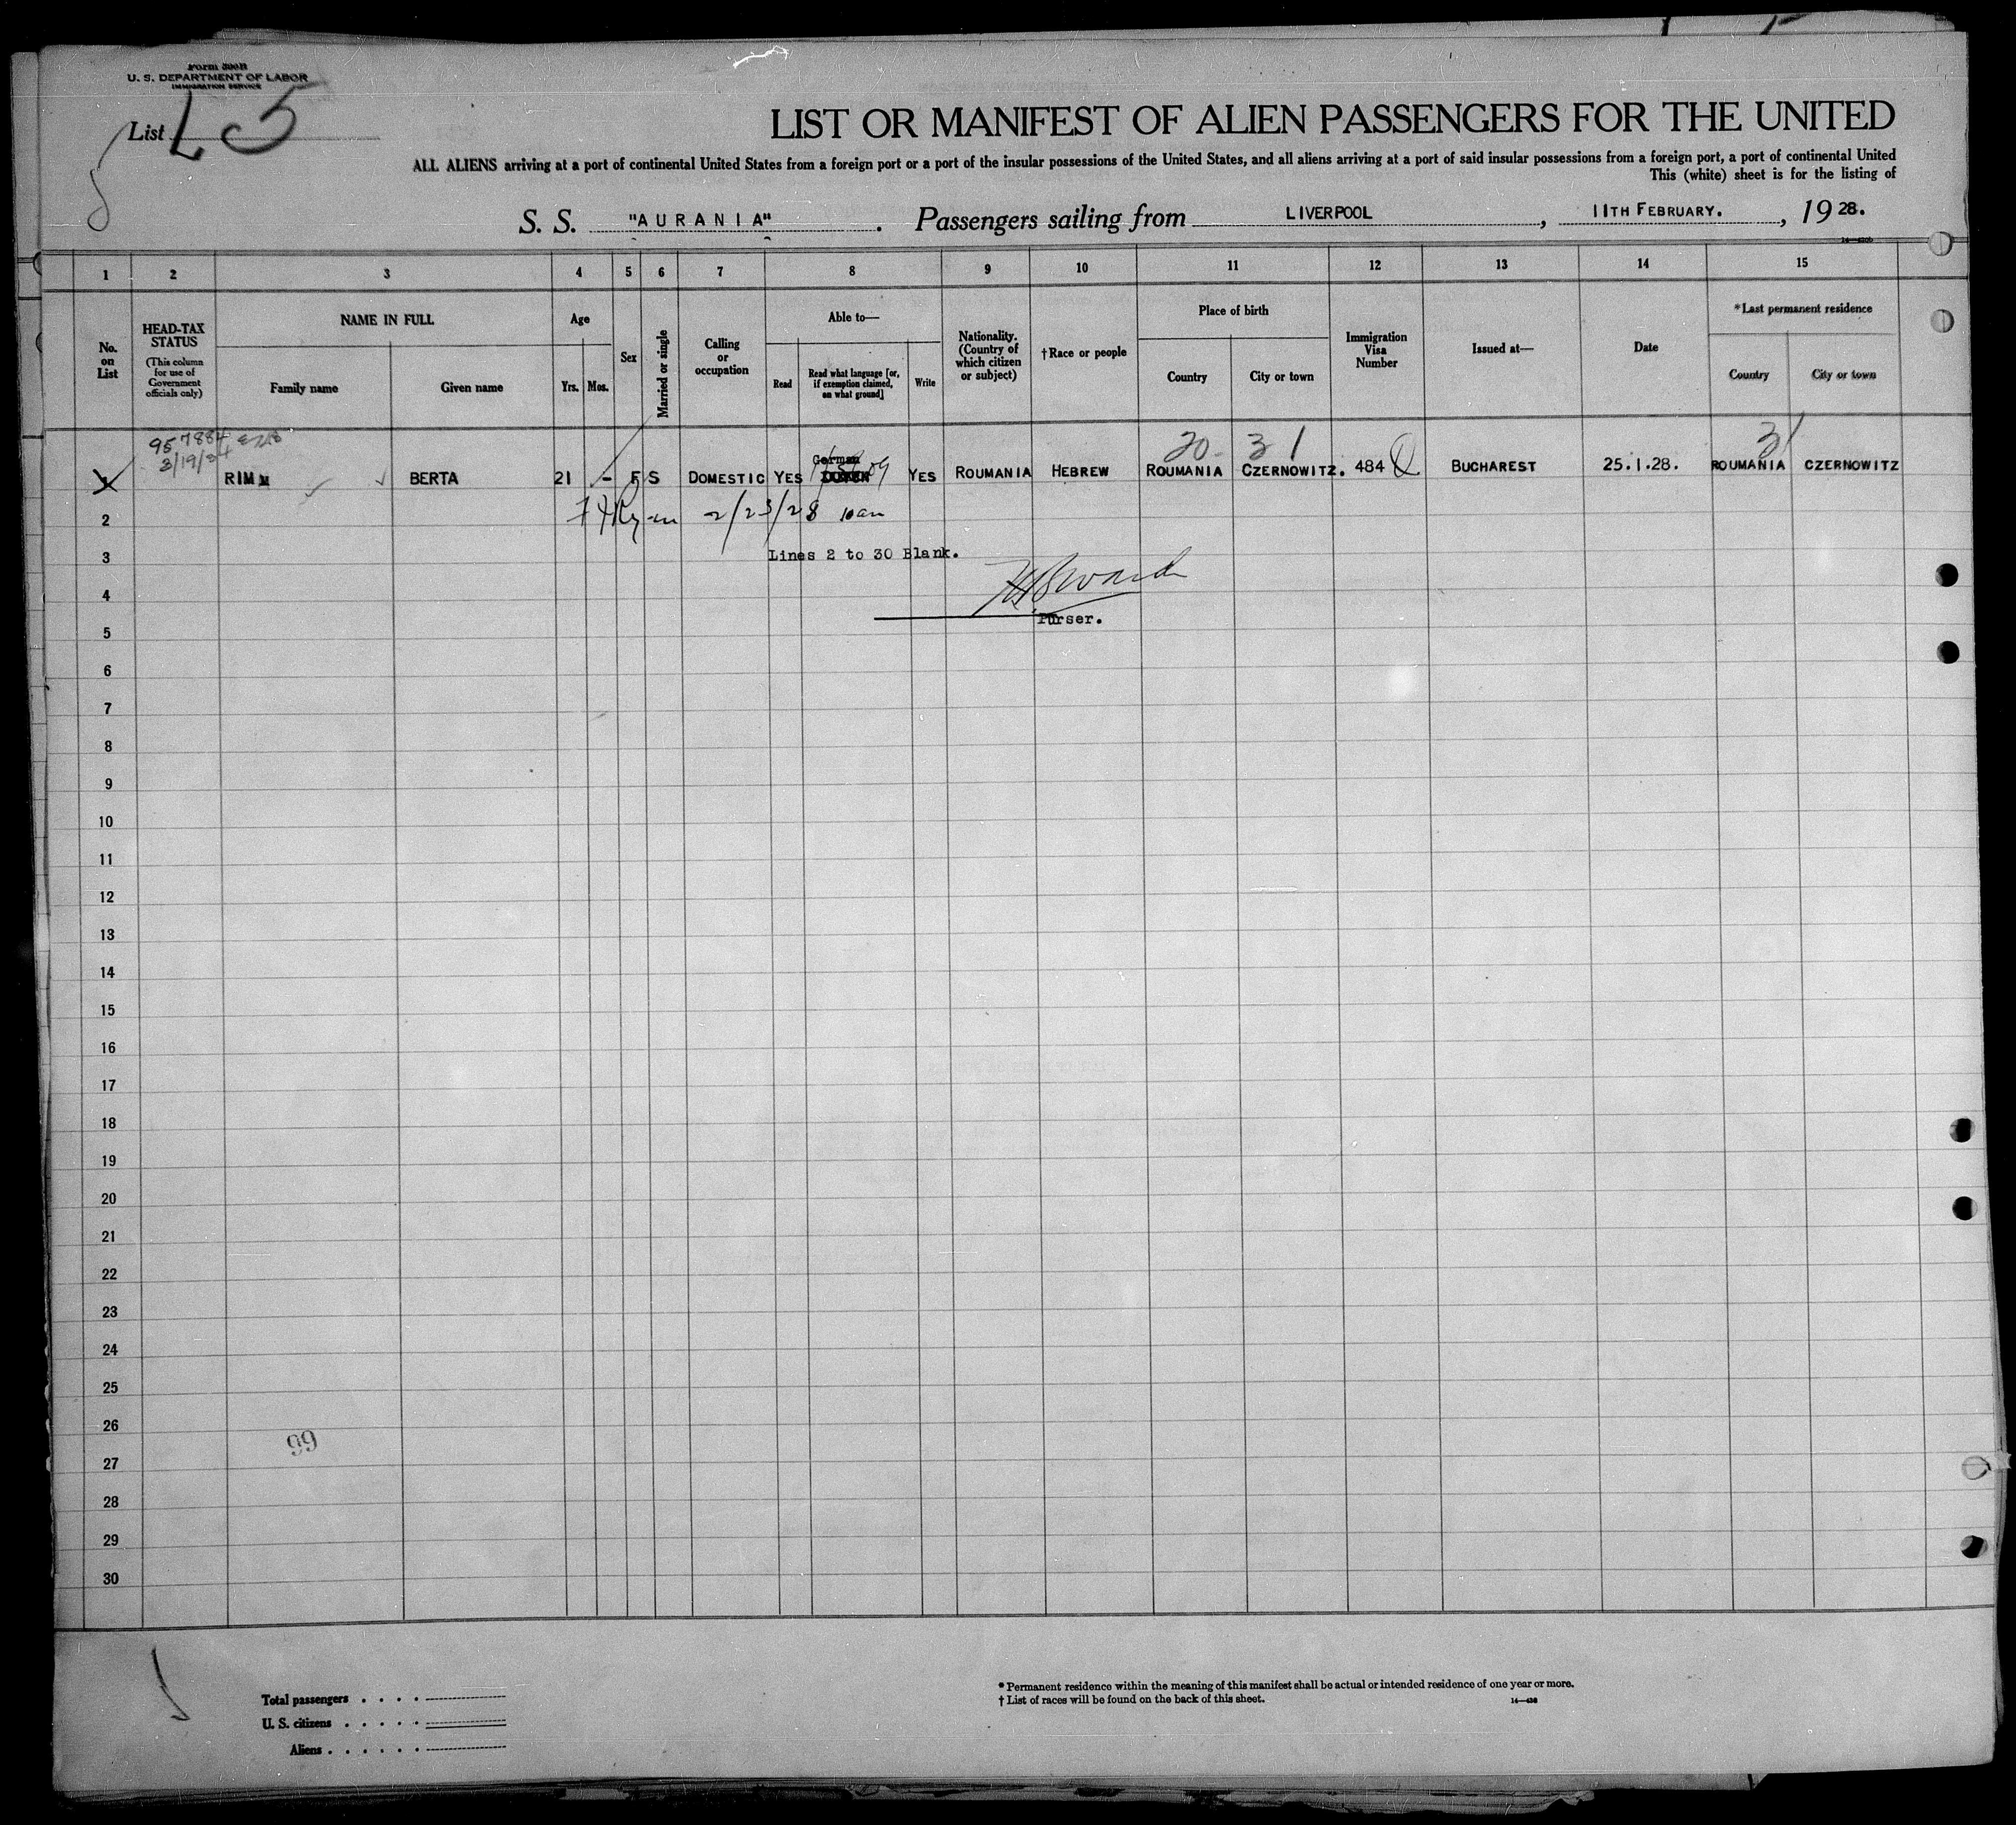 Form 500B
U. S. DEPARTMENT OF LABOR
IMMIGRATION SERVICE
List L 5
LIST OR MANIFEST OF ALIEN PASSENGERS FOR THE UNITED
ALL ALIENS arriving at a port of continental United States from a foreign port or a port of the insular possessions of the United States, and all aliens arriving at a port of said insular possessions from a foreign port, a port of continental United
This (white) sheet is for the listing of
S. S. "AURANIA". Passengers sailing from LIVERPOOL, 11TH FEBRUARY., 19 28.
1 2 3 4 5 6 7 8 9 10 11 12 13 14 15
No. on List
HEAD-TAX STATUS (This column for use of Government officials only)
NAME IN FULL
Family name
Given name
Age
Yrs. Mos.
Sex
Married or single
Calling or occupation
Able to—
Read
Read what language [or, if exemption claimed, on what ground]
Write
Nationality. (Country of which citizen or subject)
†Race or people
Place of birth
Country
City or town
Immigration Visa Number
Issued at—
Date
*Last permanent residence
Country
City or town
957884
3/19/34
20 31 31
German
RIMM BERTA 21 - F S DOMESTIC YES YES ROUMANIA HEBREW ROUMANIA CZERNOWITZ. 484 BUCHAREST 25.1.28. ROUMANIA CZERNOWITZ
2 Ryan 2/23/28 10am
3 Lines 2 to 30 Blank.
4
Purser.
5
6
7
8
9
10
11
12
13
14
15
16
17
18
19
20
21
22
23
24
25
26
99
27
28
29
30
Total passengers
U. S. citizens
Aliens
* Permanent residence within the meaning of this manifest shall be actual or intended residence of one year or more.
† List of races will be found on the back of this sheet.